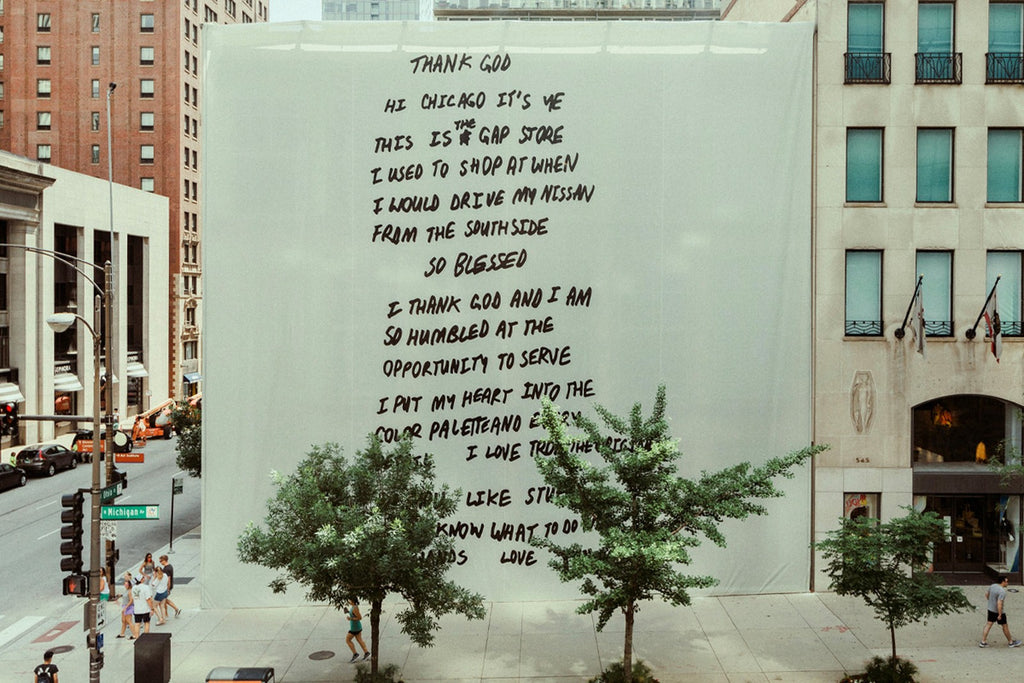 THANK GOD
HI CHICAGO IT'S YE
THIS IS THE GAP STORE
I USED TO SHOP AT WHEN
I WOULD DRIVE MY NISSAN
FROM THE SOUTHSIDE
SO BLESSED
I THANK GOD AND I AM
SO HUMBLED AT THE
OPPORTUNITY TO SERVE
I PUT MY HEART INTO THE
COLOR PALETTE AND
I LOVE
LIKE
KNOW WHAT TO DO
LOVE
N Michigan Av
545
SEPHORA